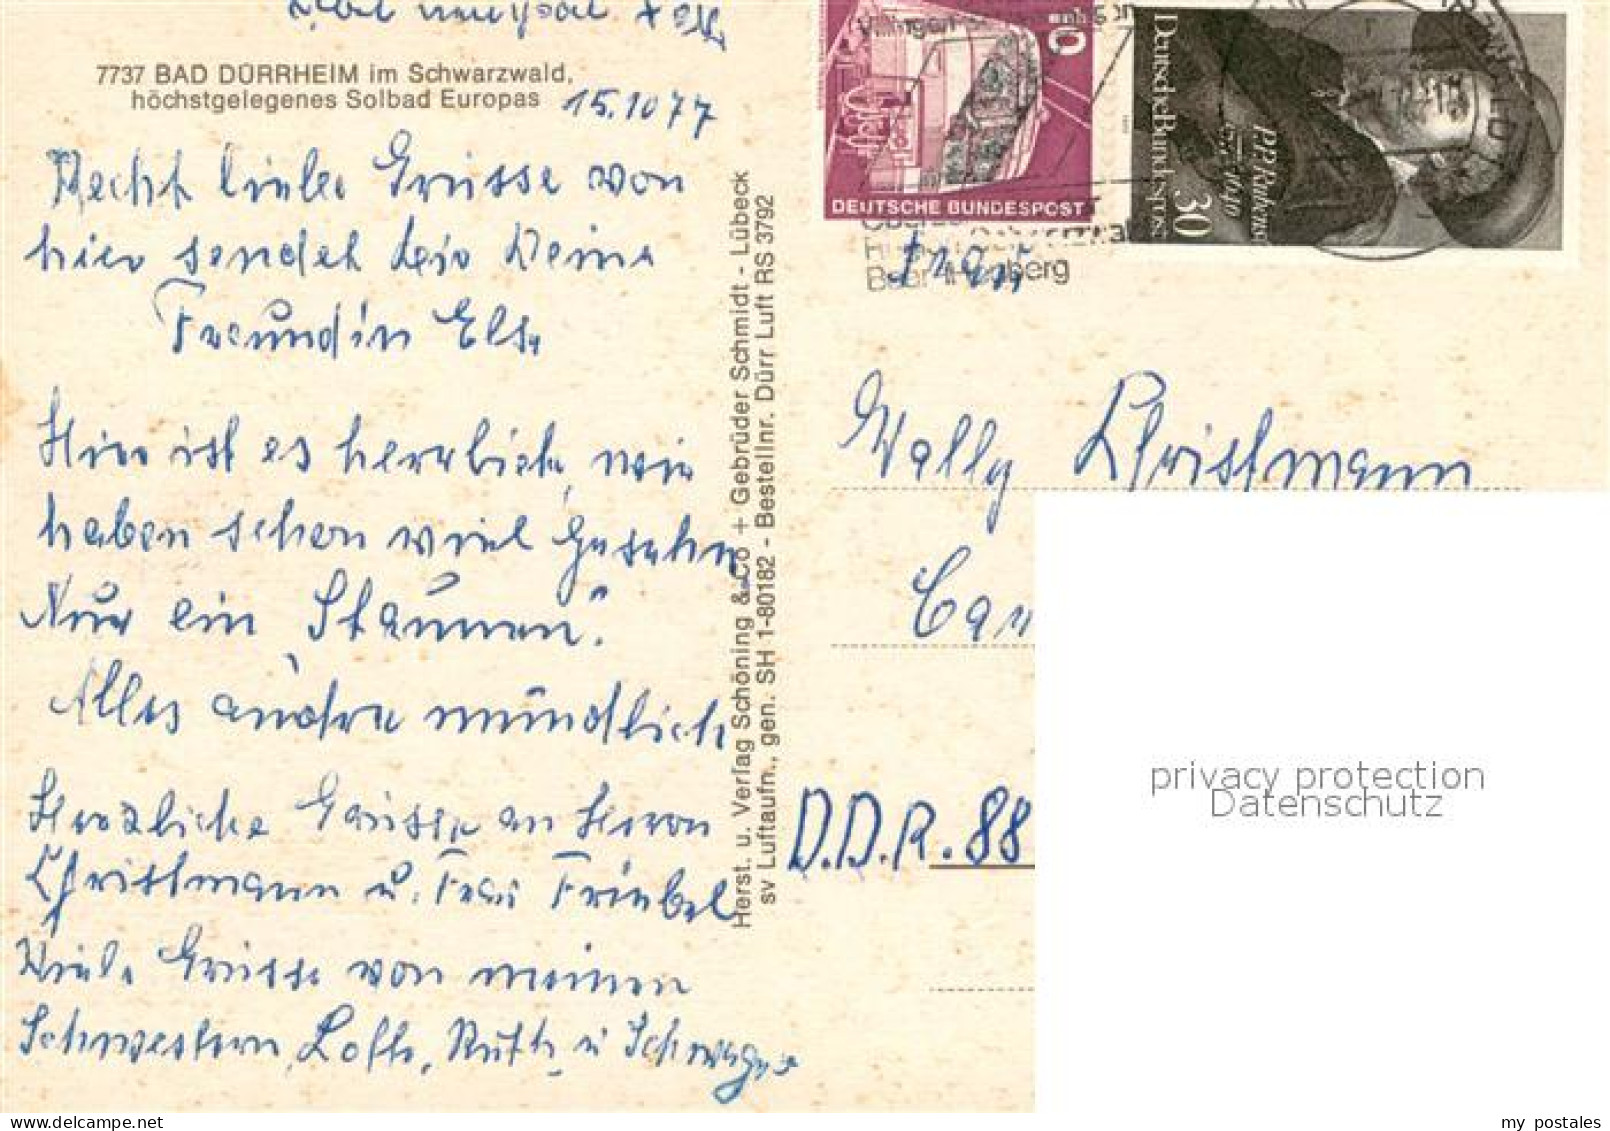 7737 BAD DÜRRHEIM im Schwarzwald,
höchstgelegenes Solbad Europas
15.10 77
Recht liebe Grüsse von
hier sendet Dir Deine
Freundin Else
Hier ist es herrlich, wir
haben schon viel gesehn
Nur ein „Staunen“.
Alles andre mündlich
Herzliche Grüsse an Herrn
Christmann u. Frau Friebel
Viele Grüsse von meinen
Schwestern, Lotte, Ruth u Schwager
Herst. u. Verlag Schöning & Co + Gebrüder Schmidt - Lübeck
sv Luftaufn., gen. SH 1-80182 - Bestellnr. Dürr Luft RS 3792
DEUTSCHE BUNDESPOST
Deutsche Bundespost
P.P. Rubens
1577 1640
30
Frau
Wally Christmann
D.D.R. 88
privacy protection
Datenschutz
my postales